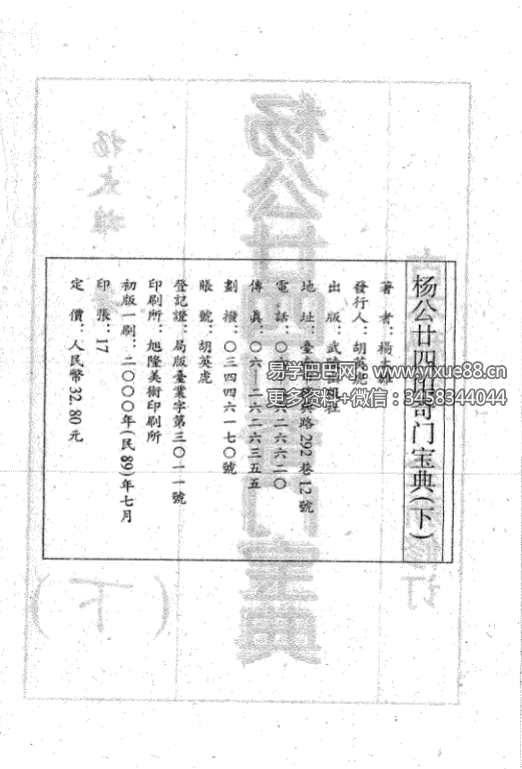 杨公廿四阳奇门宝典(下)
著 者：楊太雄
發行人：胡英虎
出 版：武陵出版社
地 址：臺南 興路292巷12號
電 話：〇六 二六二〇
傳 真：〇六—二六二六三五五
劃 撥：〇三四四六一七〇號
賬 號：胡英虎
登記證：局版臺業字第三〇一一號
印刷所：旭隆美術印刷所
初版一刷：二〇〇〇年(民89)年七月
印 張：17
定 價：人民幣32.80元
易学巴巴网：www.yixue88.cn
更多资料+微信：3458344044
杨公廿四
门宝典
(下)
杨太雄
修订